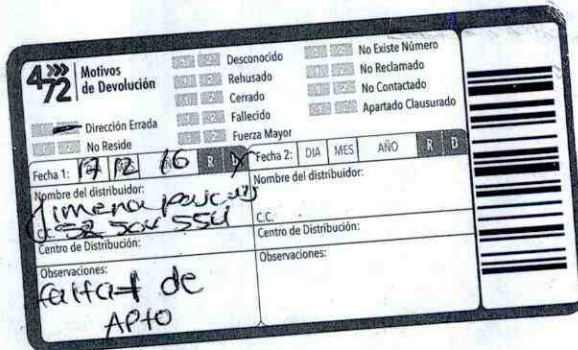 472 Motivos de Devolución
Desconocido
Rehusado
Cerrado
Fallecido
Fuerza Mayor
No Existe Número
No Reclamado
No Contactado
Apartado Clausurado
Dirección Errada
No Reside
Fecha 1: 16 R D
Nombre del distribuidor:
Jimena
C.C. 52 504 554
Centro de Distribución:
Observaciones:
falta # de
APTO
Fecha 2: DIA MES AÑO R D
Nombre del distribuidor:
C.C.
Centro de Distribución:
Observaciones: